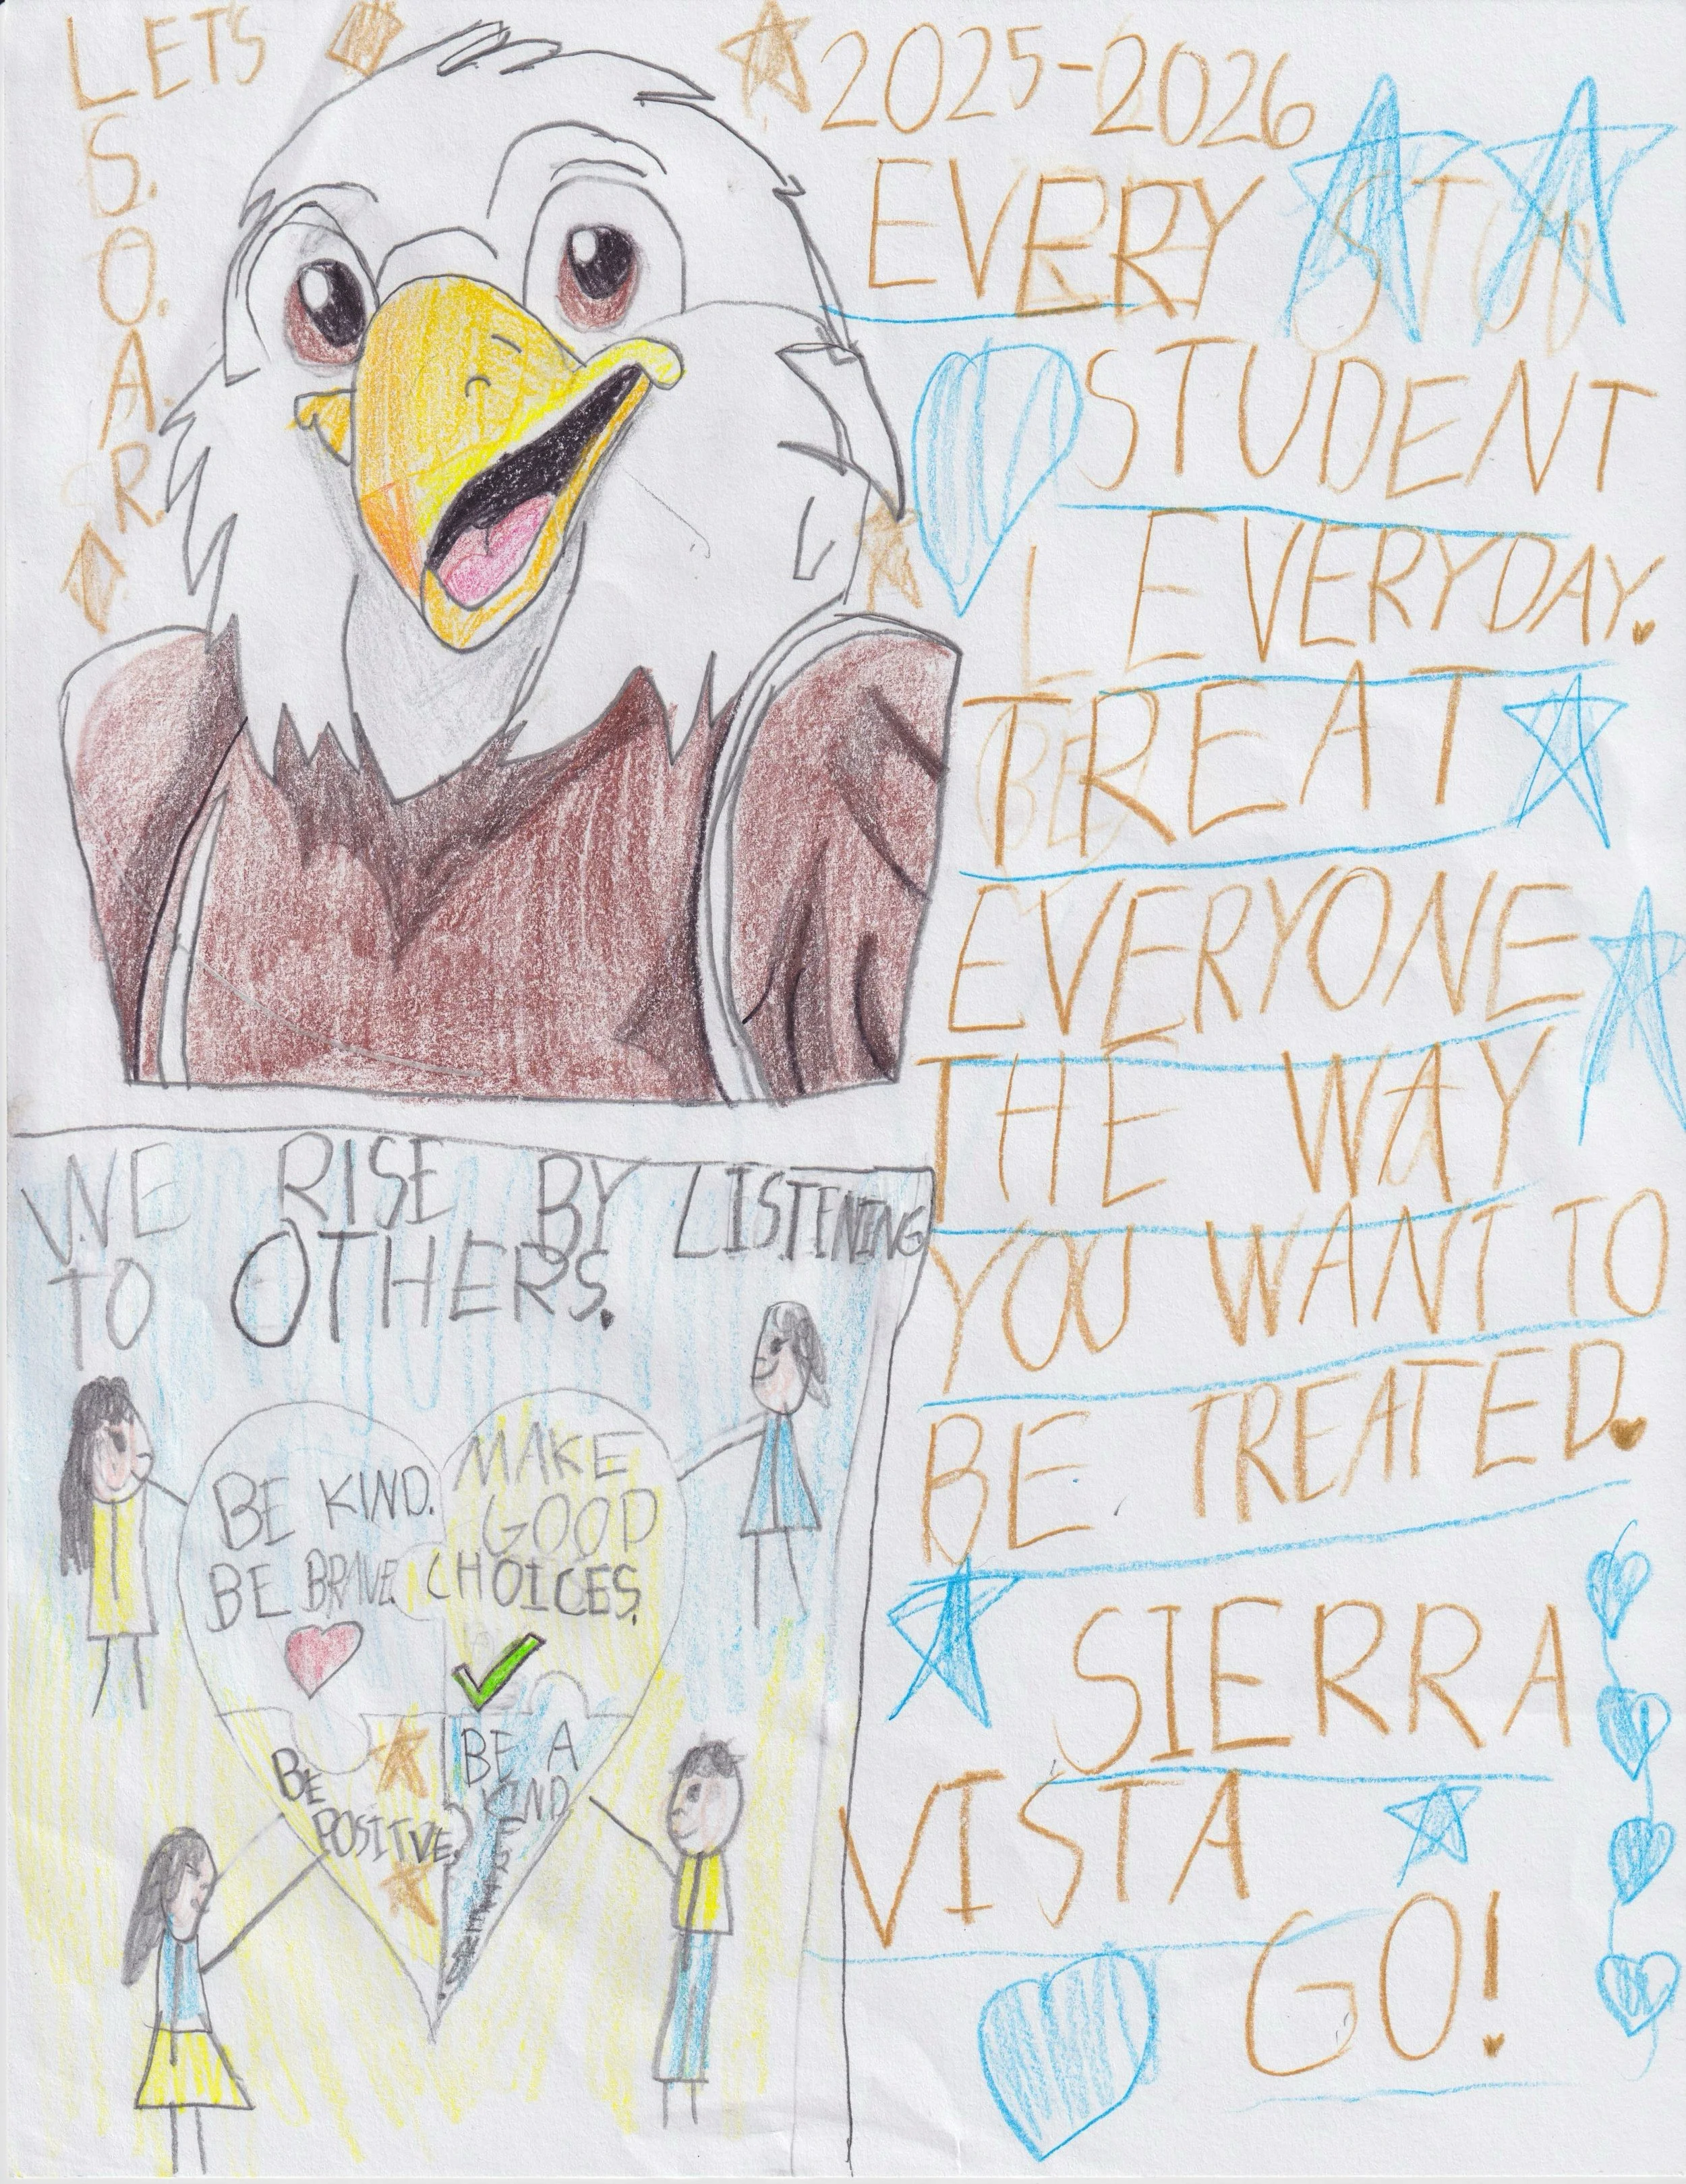 LETS
S.
O.
A.
R.
2025-2026
EVERY STUD
STUDENT
L EVERYDAY.
BE
TREAT
EVERYONE
THE WAY
YOU WANT TO
BE TREATED.
SIERRA
VISTA
GO!
WE RISE BY LISTENING
TO OTHERS.
BE KIND.
BE BRAVE.
MAKE
GOOD
CHOICES.
BE
POSITVE.
BE A
KIND